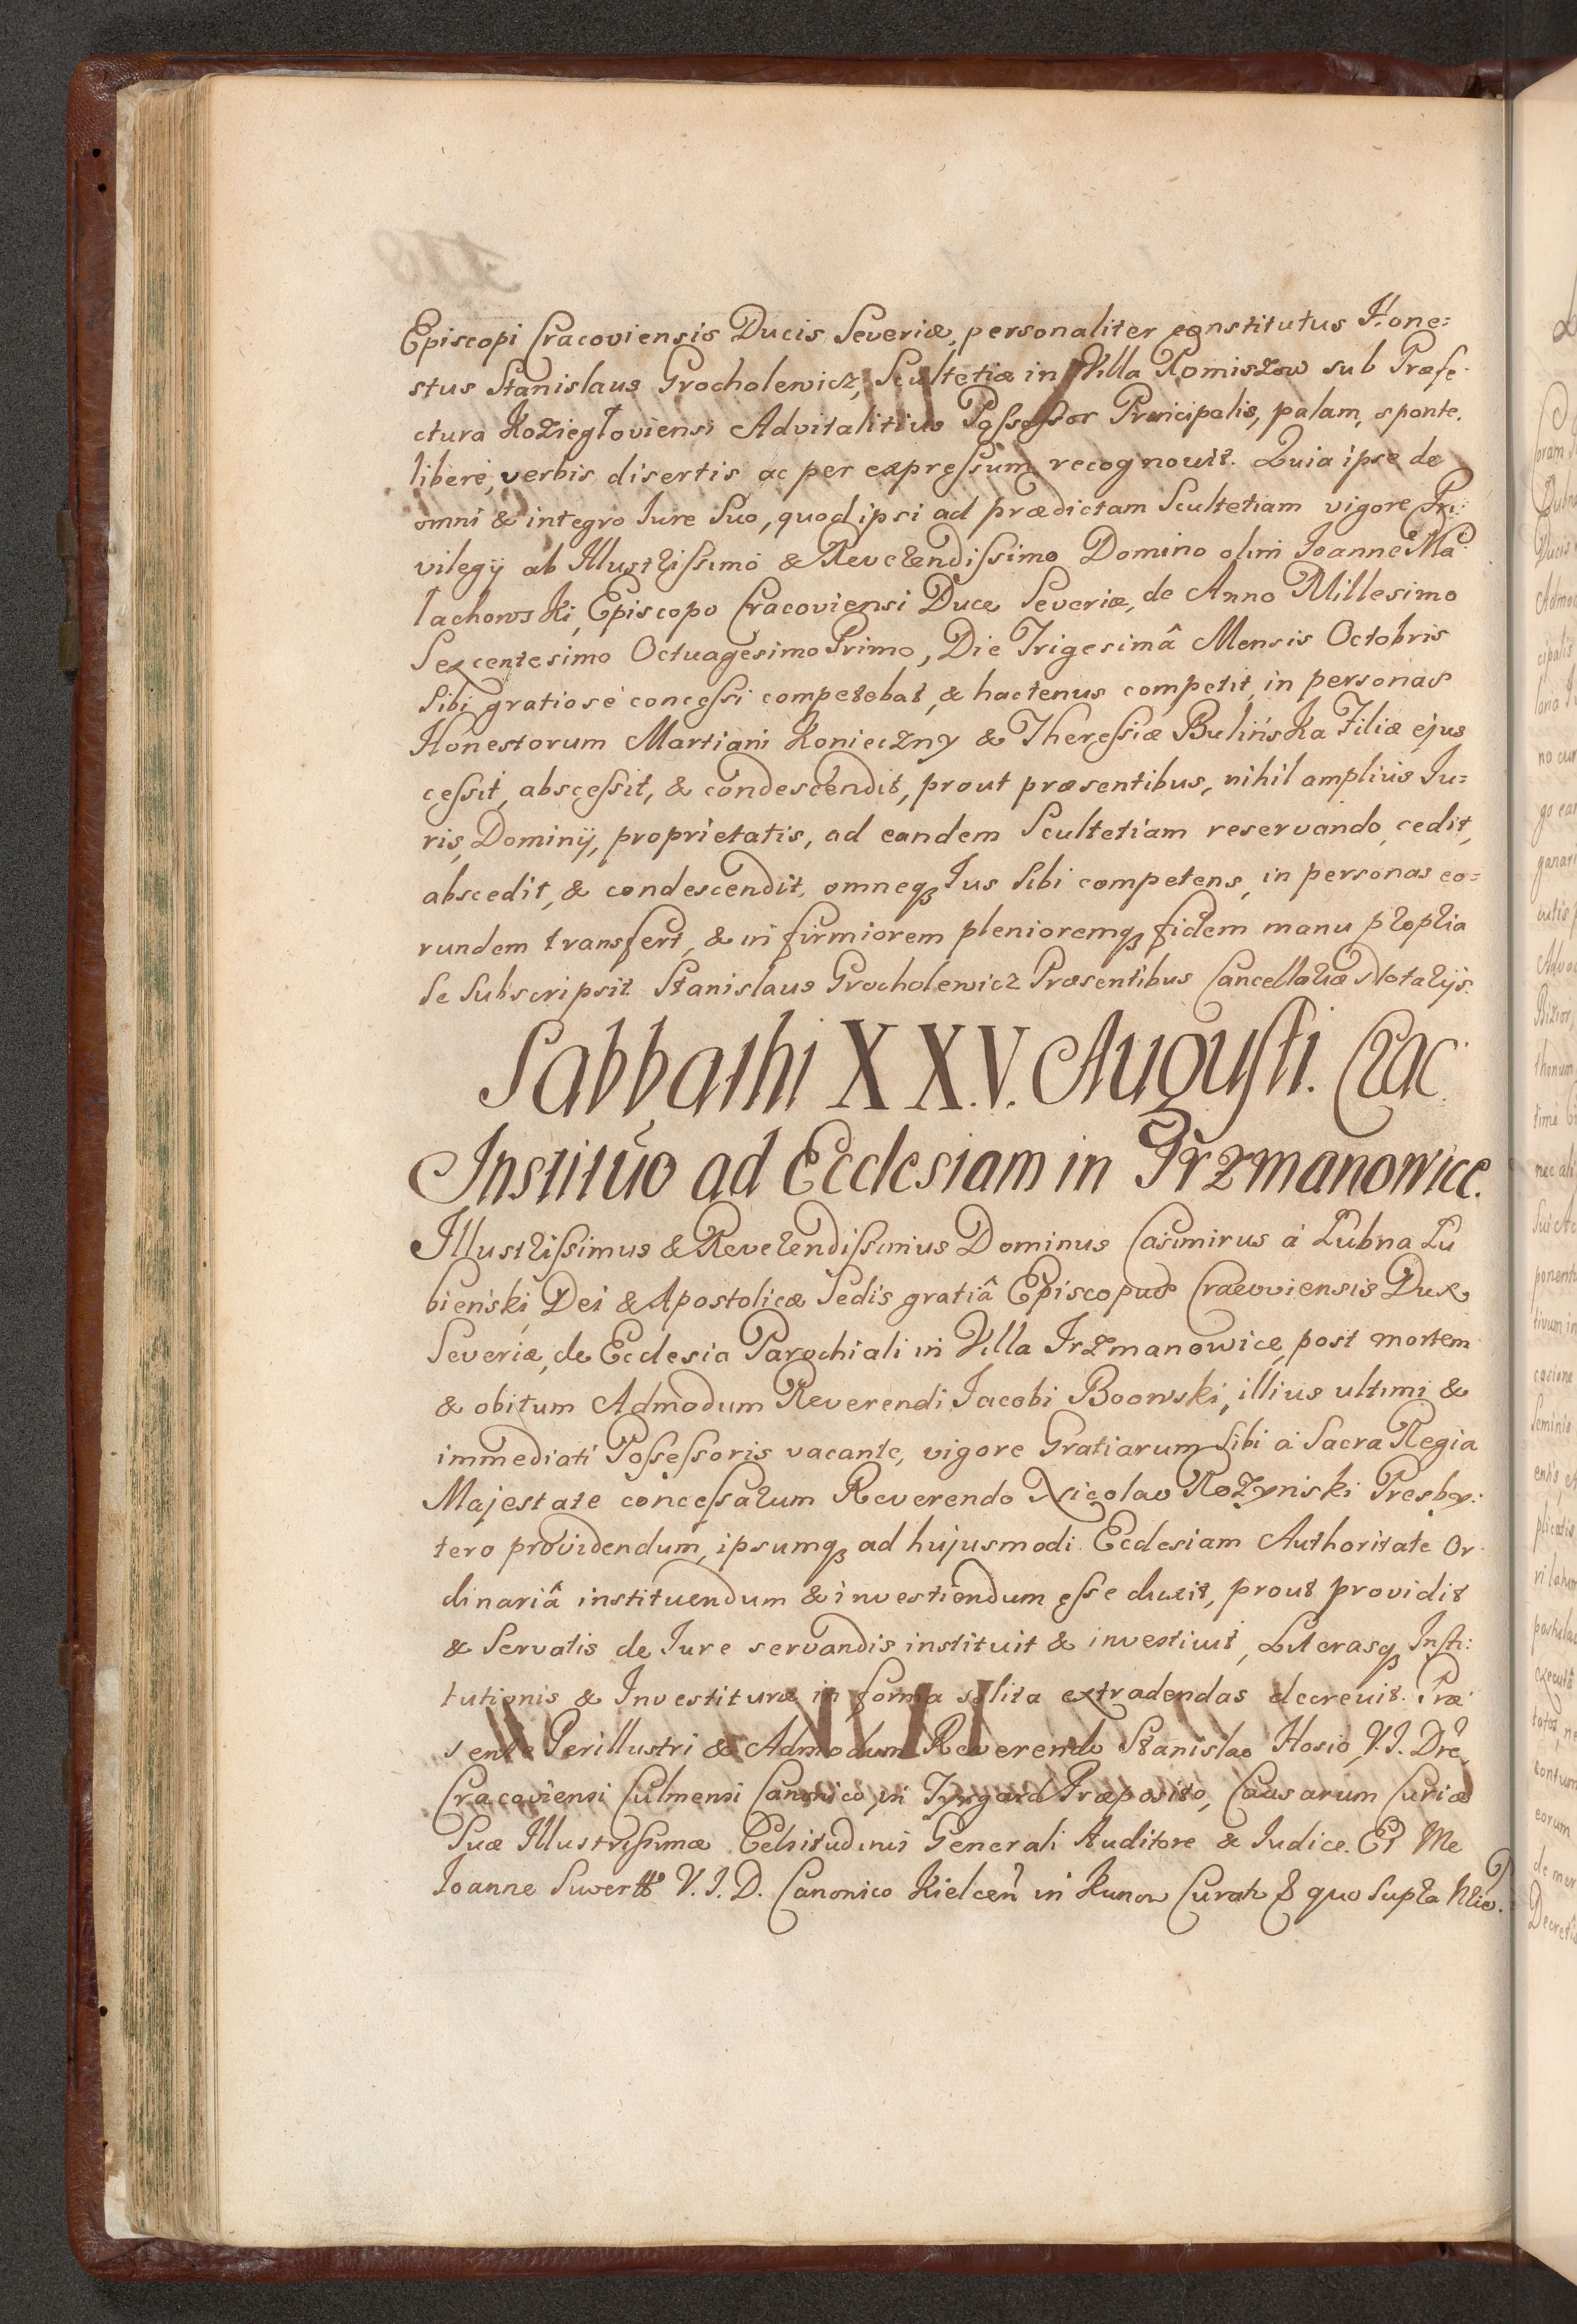 Episcopi Cracoviensis Ducis Severiæ, personaliter constitutus Hone:
stus Stanislaus Grocholewicz, Scultetiæ in Villa Romiszow sub Præfe:
ctura Koziegłoviensi Advitalitius Possessor Principalis, palam, sponte,
liberè, verbis disertis ac per expressum recognovit. Quia ipse de
omni & integro Iure Suo, quod ipsi ad prædictam Scultetiam vigore Pri:
vilegij ab Illustrissimo & Reverendissimo Domino olim Ioanne Ma:
łachowski, Episcopo Cracoviensi Duce Severiæ, de Anno Millesimo
Sexcentesimo Octuagesimo Primo, Die Trigesimâ Mensis Octobris
Sibi gratiosè concessi competebat, & hactenus competit, in personas
Honestorum Martiani Konieczny & Theressiæ Bulińska Filiæ ejus
cessit, abscessit, & condescendit, prout præsentibus, nihil amplius Iu=
ris, Dominij, proprietatis, ad eandem Scultetiam reservando, cedit,
abscedit, & condescendit, omneq; Ius Sibi competens, in personas eo=
rundem transfert, & in firmiorem plenioremq; fidem manu propria
Se Subscripsit Stanislaus Grocholewicz Præsentibus Cancellariæ Notarijs.
Sabbathi XXV. Augusti. Crac.
Institũo ad Ecclesiam in Jrzmanowice.
Illustrissimus & Reverendissimus Dominus Casimirus à Łubna Łu
bieński, Dei & Apostolicæ Sedis gratiâ Episcopus Cracoviensis Dux
Severiæ, de Ecclesia Parochiali in Villa Irzmanowice, post mortem
& obitum Admodum Reverendi Iacobi Boowski, illius ultimi &
immediati Possessoris vacante, vigore Gratiarum Sibi à Sacra Regia
Majestate concessarum Reverendo Nicolao Rozynski Presby:
tero providendum, ipsumq; ad hujusmodi Ecclesiam Authoritate Or
dinariâ instituendum & investiendum esse duxit, prout providit
& Servatis de Iure servandis instituit & investivit, Literasq; Insti:
tutionis & Investituræ in forma solita extradendas decrevit. Præ
sente Perillustri & Admodum Reverendo Stanislao Hosio, V.I. Dre,
Cracoviensi Culmensi Canonico, in Præposito, Causarum Curiæ
Suæ Illustrissimæ Celsitudinis Generali Auditore & Iudice. Et Me
Ioanne V.I.D. Canonico Kielceñ in Kunow Curato quo Supra